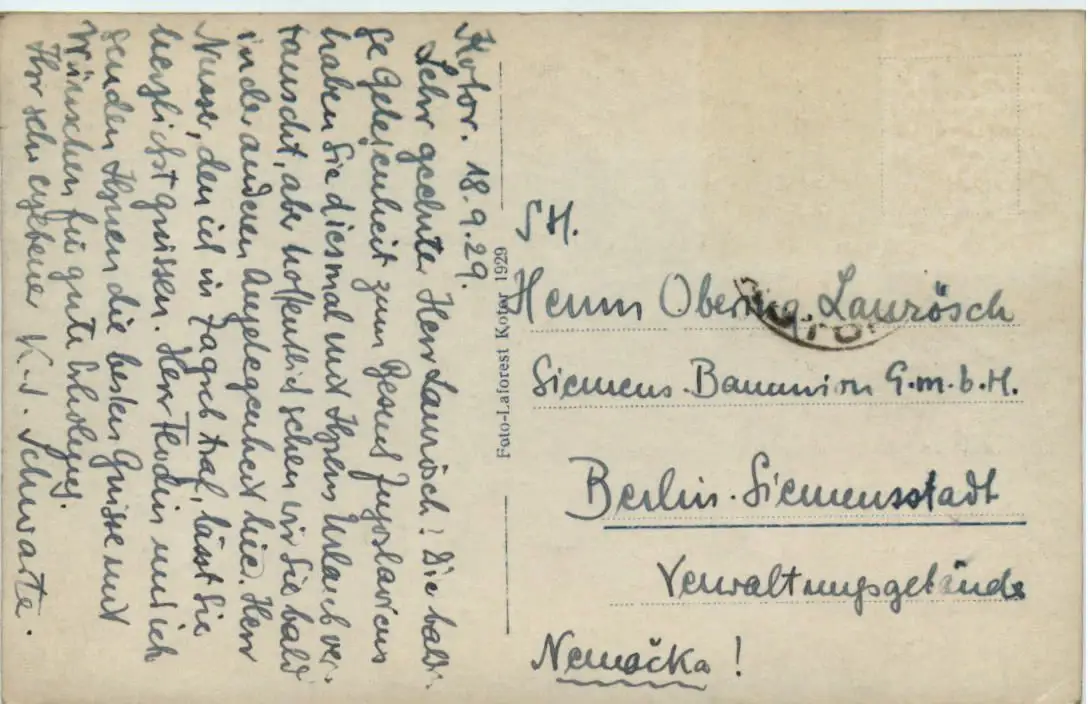 Kotor. 18.9.29.
Sehr geehrter Herr Laurösch! Die baldi-
ge Gelegenheit zum Besuch Jugoslaviens
haben Sie diesmal mit Ihrem Urlaub ver-
tauscht, aber hoffentlich sehen wir Sie bald
in der anderen Angelegenheit hier. Herr
Nusser, den ich in Zagreb traf, lässt Sie
herzlichst grüssen. Herr und ich
senden Ihnen die besten Grüsse und
Wünschen für gute Erholung.
Ihr sehr ergebener K. J. Schwarte.
Foto-Laforest Kotor 1929
SH.
Herrn Obering. Laurösch
Siemens-Bauunion G.m.b.H.
Berlin-Siemensstadt
Verwaltungsgebäude
Nemačka!